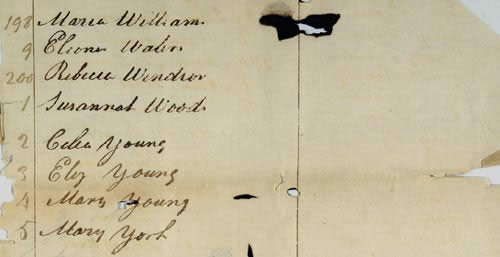 198 Maria William
9 Eleonr
200 Rebecca Windsor
1 Susannah Wood
2 Celia Young
3 Eliz Young
4 Mary Young
5 Mary York